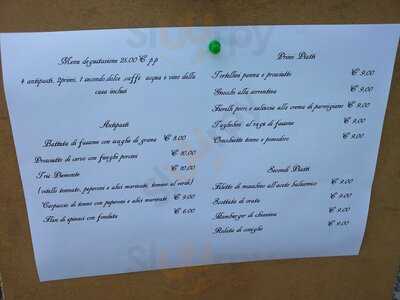 Menu degustazione 25,00 € p.p
4 antipasti, 2primi, 1 secondo, dolce caffè acqua e vino della
casa inclusi
Antipasti
Battuta di fassone con scaglie di grana € 8,00
Prosciutto di cervo con funghi porcini € 10,00
Tris Piemonte € 10,00
(vitello tonnato, peperoni e alici marinati, tomino al verde)
Carpaccio di tonno con peperoni e alici marinati € 9,00
Flan di spinaci con fonduta € 6,00
Primi Piatti
Tortellini panna e prosciutto € 9,00
Gnocchi alla sorrentina € 9,00
Fiorelli porri e salsiccia alla crema di parmigiano € 9,00
Taglierini al ragù di fassone € 9,00
Orecchiette tonno e pomodoro € 9,00
Secondi Piatti
Filetto di maialino all'aceto balsamico € 9,00
Scottata di orata € 9,00
Hamburger di chianina € 9,00
Rolata di coniglio € 9,00